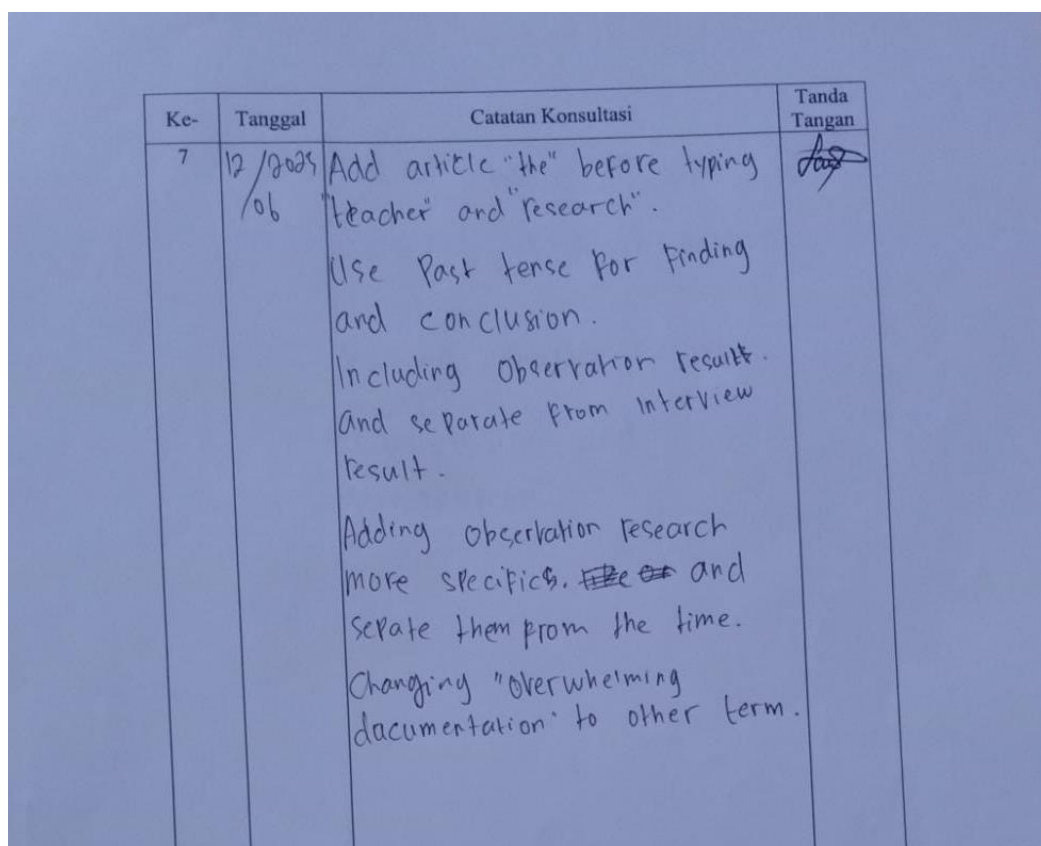 Ke- Tanggal Catatan Konsultasi Tanda Tangan
7 12/2025 Add article "the" before typing
/06 "teacher" and "research".
Use Past tense for Finding
and conclusion.
Including Observation result.
and separate from Interview
result.
Adding Observation research
more specifics. and
sepate them from the time.
Changing "overwhelming
dacumentation" to other term.